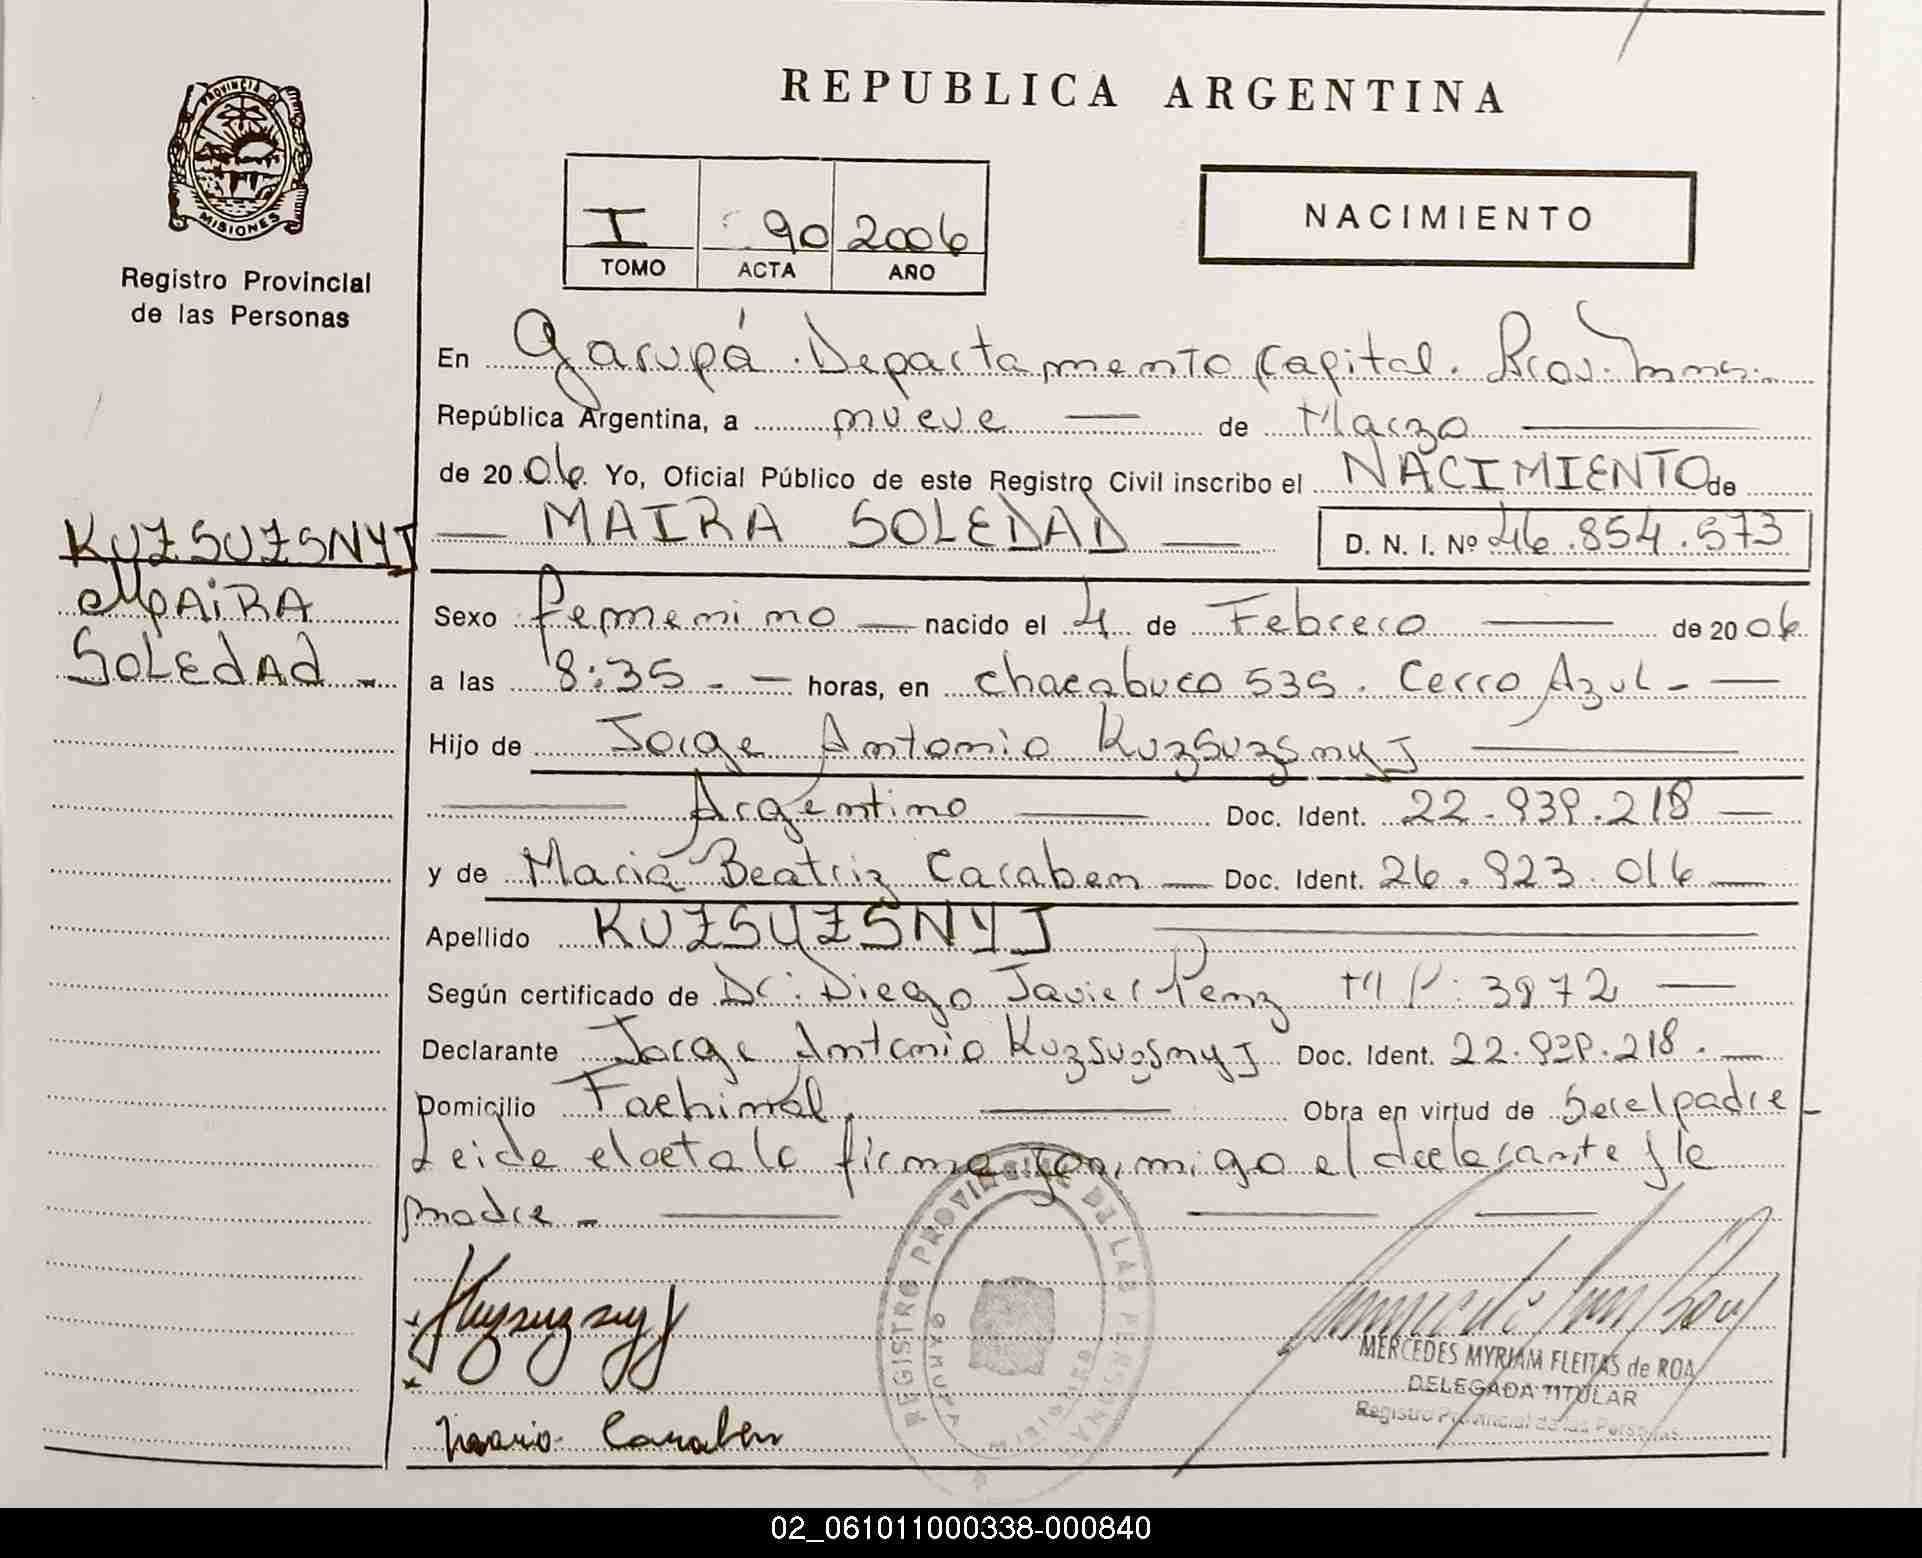 REPUBLICA ARGENTINA
PROVINCIA DE
MISIONES
Registro Provincial
de las Personas
I 90 2006
TOMO ACTA AÑO
NACIMIENTO
En Garupá. Departamento Capital. Prov. Mnes.
República Argentina, a nueve de Marzo
de 2006. Yo, Oficial Público de este Registro Civil inscribo el NACIMIENTO de
MAIRA SOLEDAD D. N. I. Nº 46.854.573
KUZSUZSNYJ
MAiRA
SOLEdAd -
Sexo femenino nacido el 4 de Febrero de 2006
a las 8:35 - horas, en chacabuco 535. Cerro Azul -
Hijo de Jorge Antonio Kuzsuzsnyj
Argentino Doc. Ident. 22.939.218
y de Maria Beatriz Caraben Doc. Ident. 26.923.016
Apellido KUZSUZSNYJ
Según certificado de Dr: Diego Javier Penz M P: 3972
Declarante Jorge Antonio Kuzsuzsnyj Doc. Ident. 22.939.218.
Domicilio Fachinal. Obra en virtud de Ser el padre
Leida el acta la firma conmigo el declarante y la
madre -
REGISTRO PROVINCIAL DE LAS PERSONAS
GARUPA
MISIONES
Kuzsuzsnyj
Maria Caraben
MERCEDES MYRIAM FLEITAS de ROA
DELEGADA TITULAR
Registro Provincial de las Personas
02_061011000338-000840